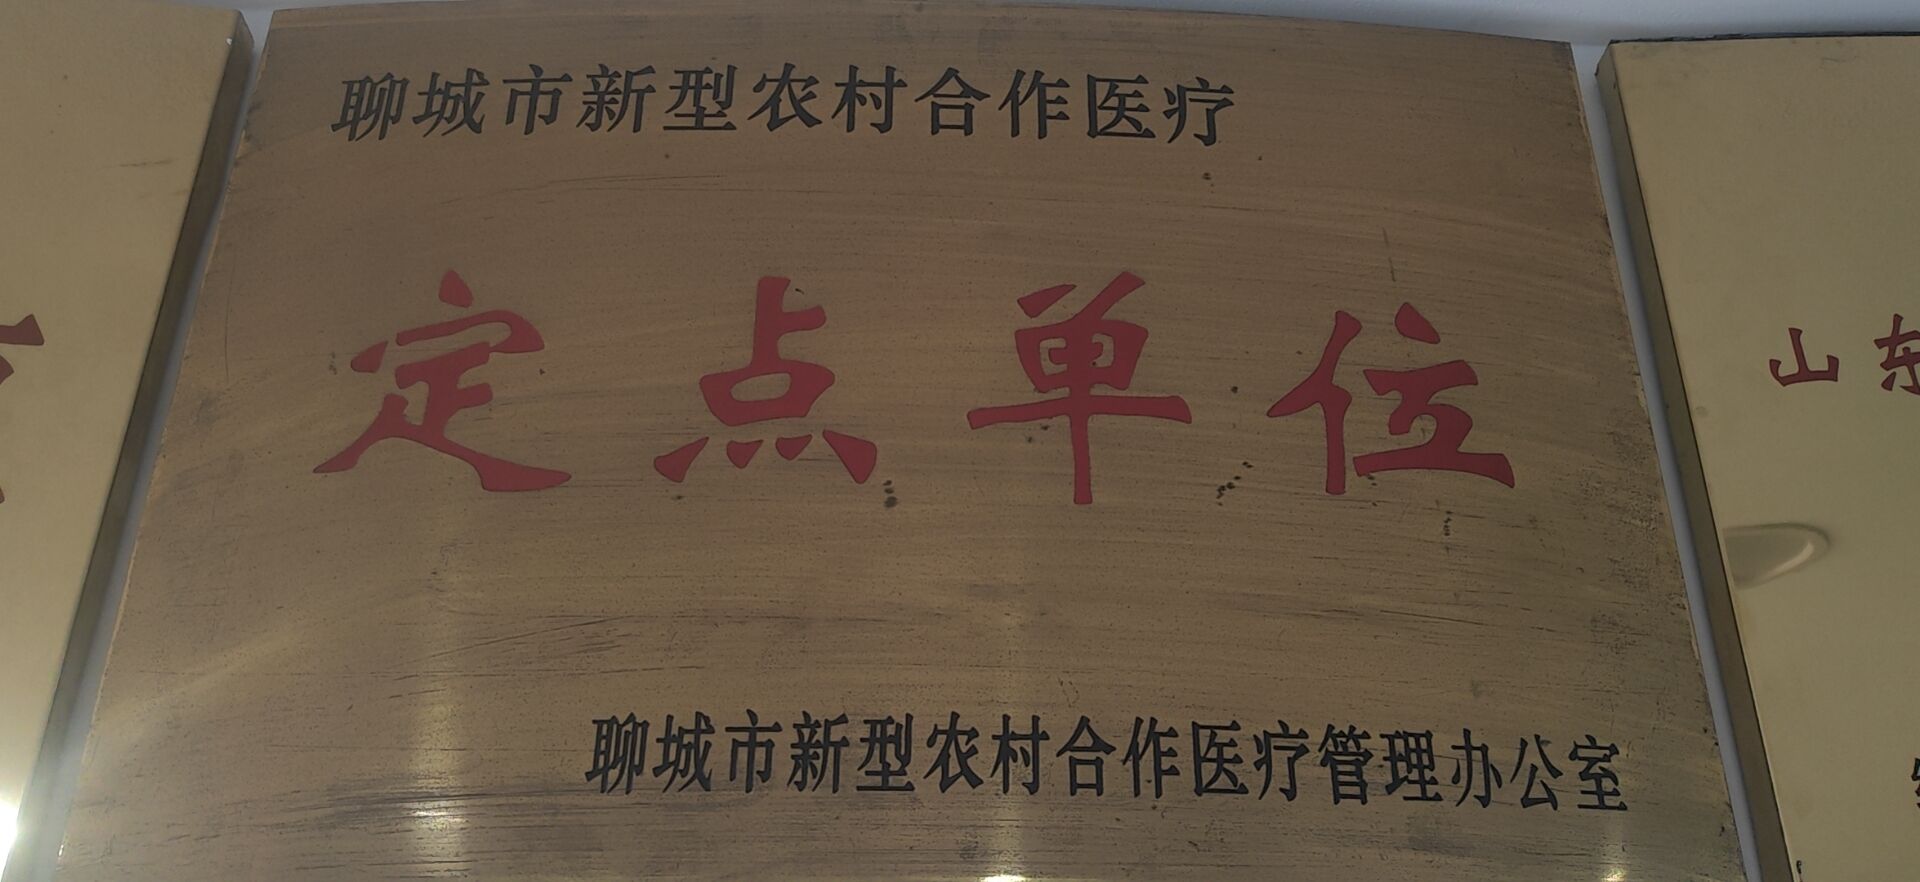 聊城市新型农村合作医疗
定点单位
聊城市新型农村合作医疗管理办公室
山东